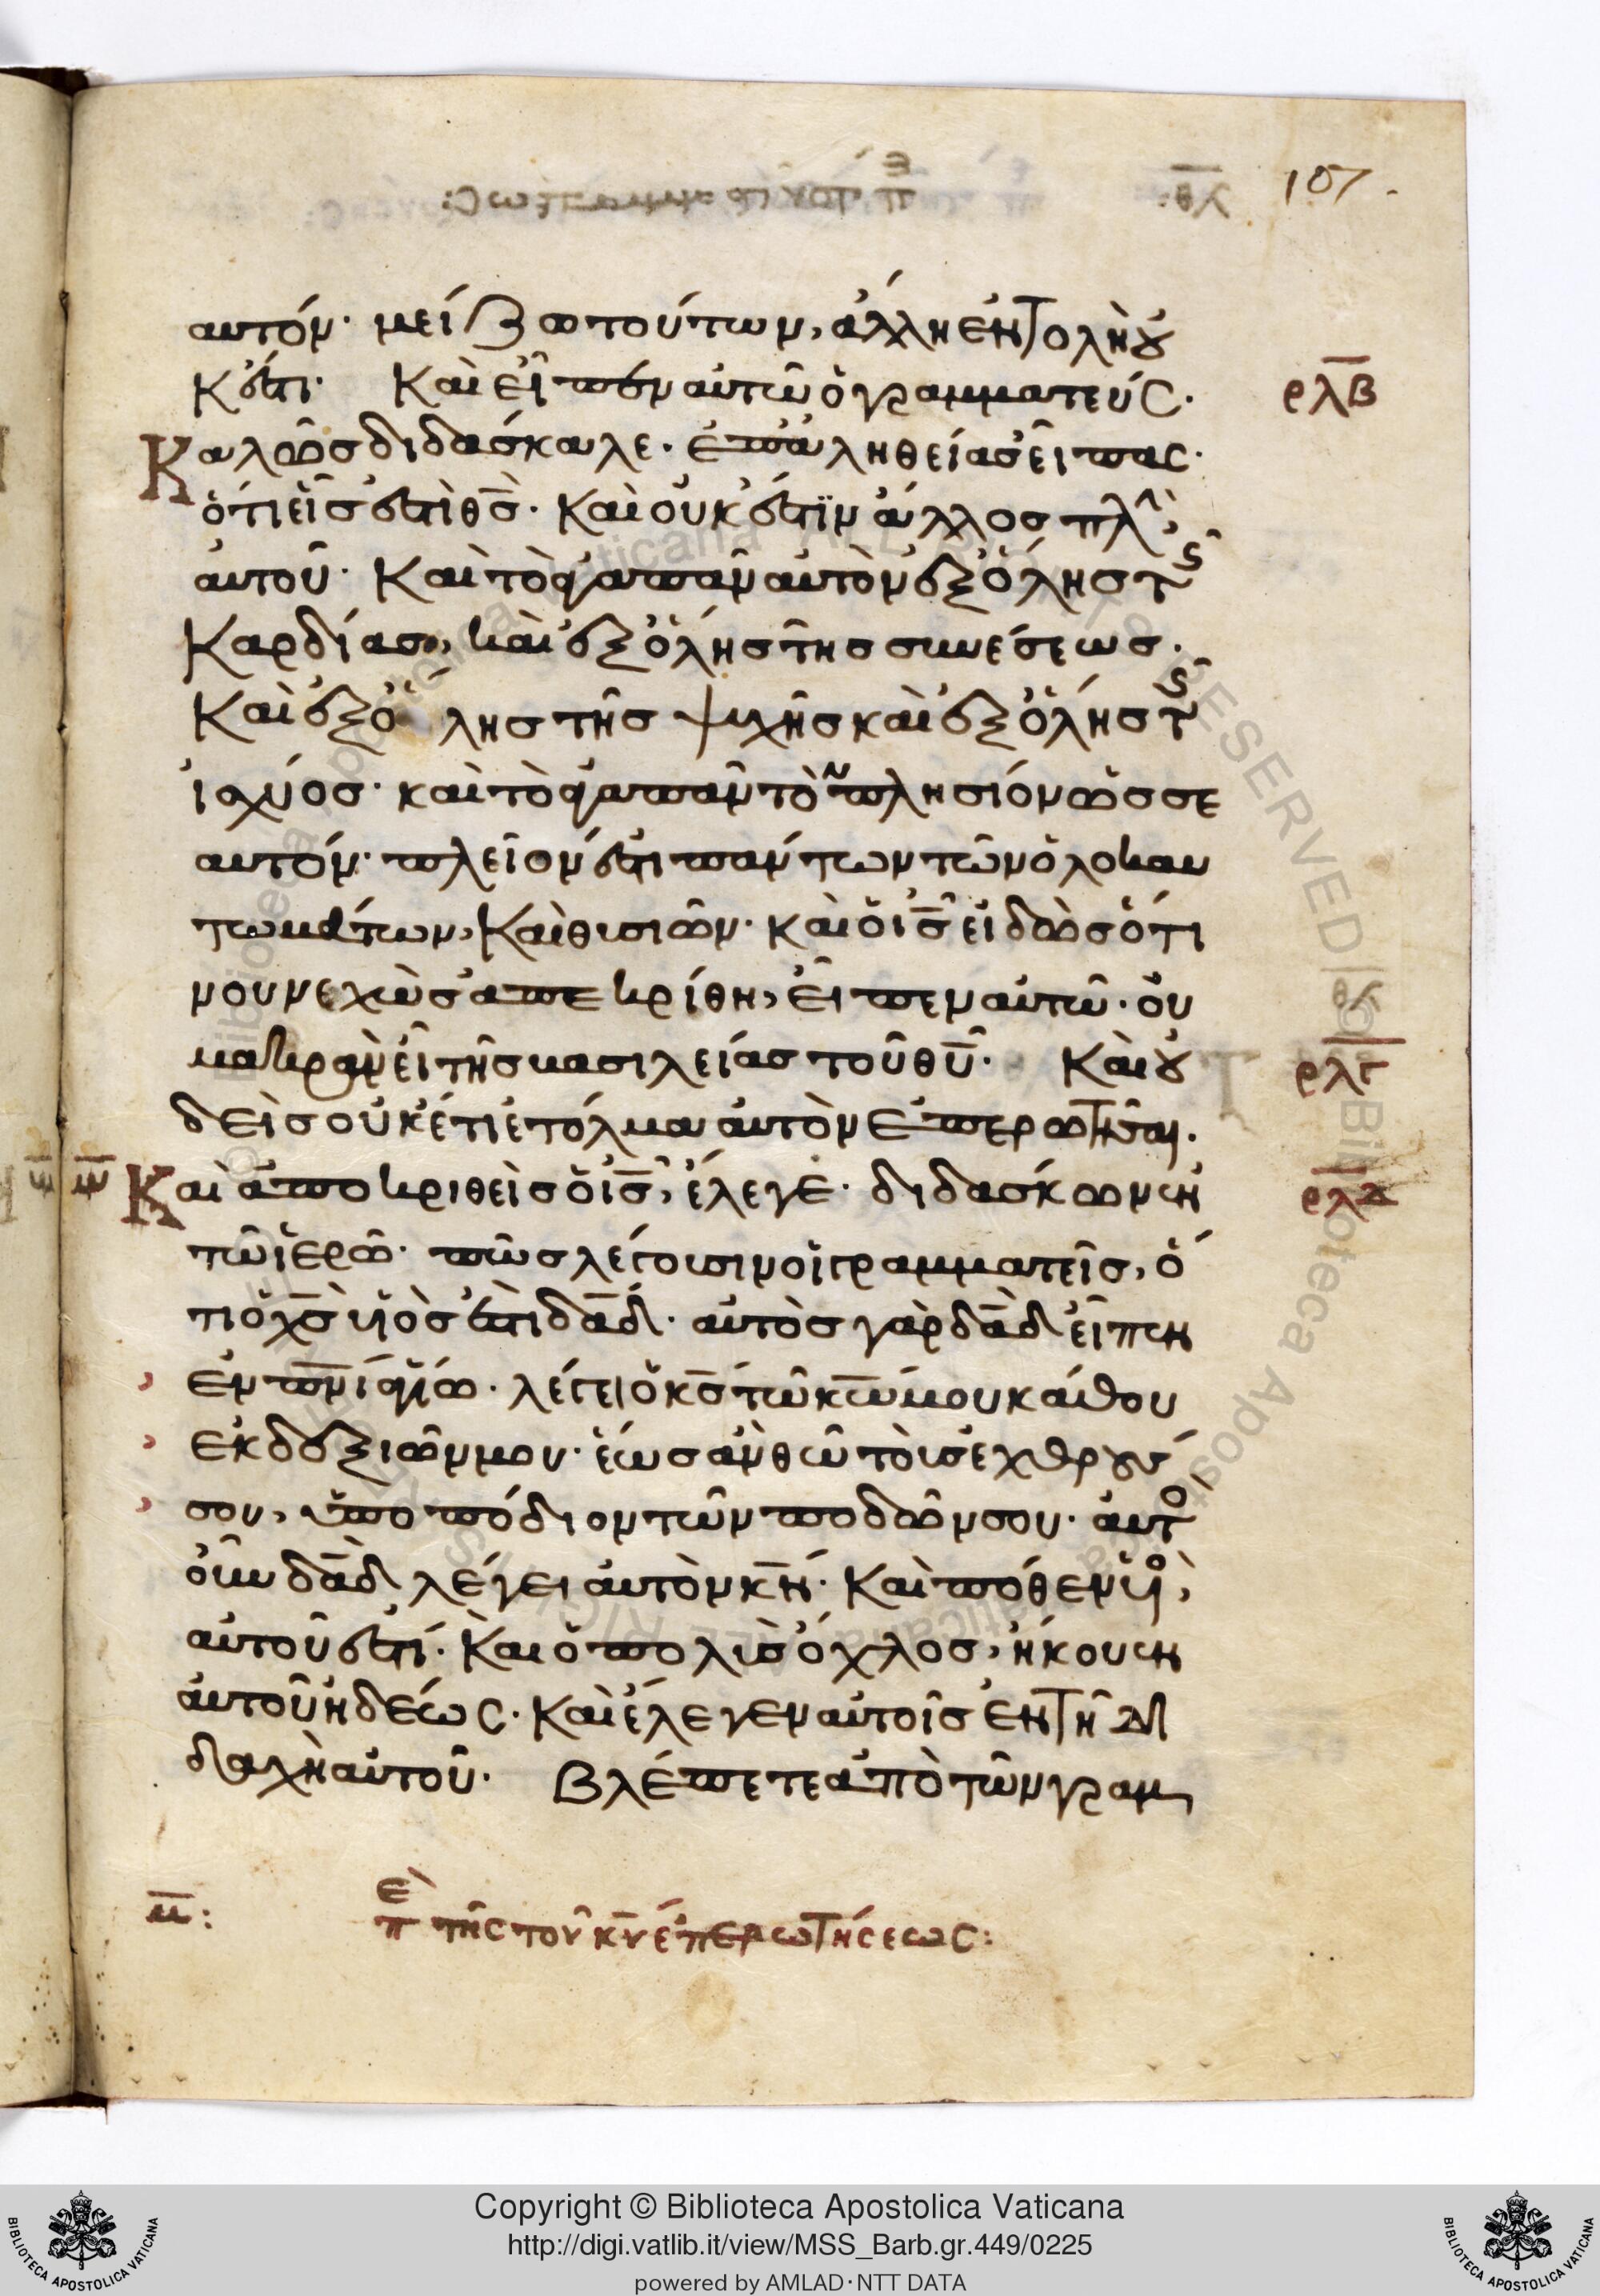 107
αυτόν· μείζω τούτων, ἄλλη ἐντολὴ οὐ
κ ἔστι· Καὶ εἶπεν αὐτῶ ὁ γραμματεύς·
ρλβ
Καλῶς διδάσκαλε· ἐπ ἀληθείας εἶπας·
ὅτι εἷς ἐστὶ θς· καὶ οὐκ ἔστιν ἄλλος πλὴν
αὐτοῦ· καὶ τὸ ἀγαπᾶν αὐτὸν ἐξ ὅλης τῆς
καρδίας, καὶ ἐξ ὅλης τῆς συνέσεως·
καὶ ἐξ ὅλης τῆς ψυχῆς καὶ ἐξ ὅλης τῆς
ἰσχύος· καὶ τὸ ἀγαπᾶν τὸν πλησίον ὡς σε
αυτόν· πλεῖόν ἐστι πάντων τῶν ὁλοκαυ
τωμάτων, καὶ θυσιῶν· καὶ ὁ ις εἰδὼς ὅτι
νουνεχῶς ἀπεκρίθη, εἶπεν αὐτῶ· οὐ
μακρὰν εἶ τῆς βασιλείας τοῦ θυ· Καὶ οὐ
ρλγ
δεὶς οὐκέτι ἐτόλμα αὐτὸν ἐπερωτῆσαι·
Καὶ ἀποκριθεὶς ὁ ις, ἔλεγε· διδάσκων ἐν
ρλδ
τῶ ἱερῶ· πῶς λέγουσιν οἱ γραμματεῖς, ὅ
τι ὁ χς υἱός ἐστι δαδ· αὐτὸς γὰρ δαδ εἶπεν
ἐν πνι ἁγίω· λέγει ὁ κς τῶ κω μου κάθου
ἐκ δεξιῶν μου· ἕως ἂν θῶ τοὺς ἐχθρούς
σου, ὑποπόδιον τῶν ποδῶν σου· αὐτὸς
οὖν δαδ λέγει αὐτὸν κν· καὶ πόθεν υἱὸς,
αὐτοῦ ἐστί· Καὶ ὁ πολὺς ὄχλος, ἤκουεν
αὐτοῦ ἡδέως· Καὶ ἔλεγεν αὐτοῖς ἐν τῆ δι
δαχῆ αὐτοῦ· Βλέπετε ἀπὸ τῶν γραμ
μ: πε τῆς τοῦ κυ ἐπερωτήσεως:
Copyright © Biblioteca Apostolica Vaticana
http://digi.vatlib.it/view/MSS_Barb.gr.449/0225
powered by AMLAD·NTT DATA
BIBLIOTECA APOSTOLICA VATICANA
BIBLIOTECA APOSTOLICA VATICANA